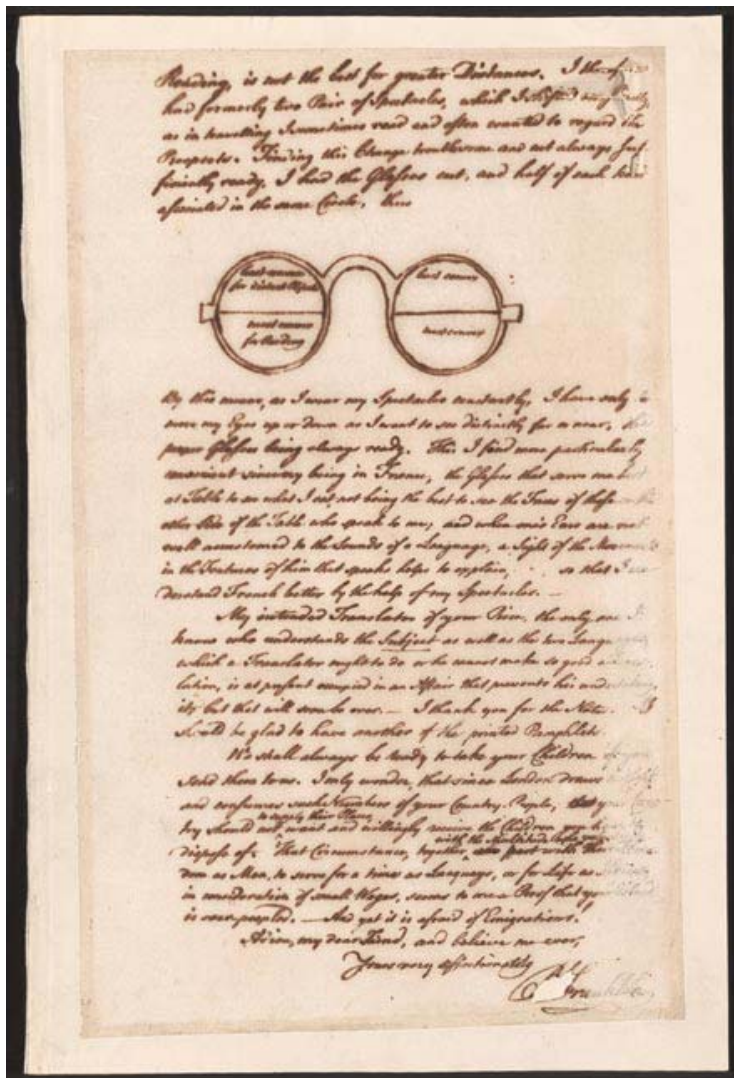 Reading, is not the best for greater Distances. I
had formerly two Pair of Spectacles, which I shifted
as in travelling I sometimes read and often wanted to regard the
Prospects. Finding this Change troublesome and not always suf-
ficiently ready, I had the Glasses cut, and half of each kind
associated in the same Circle, thus
least convex
for distant Objects
most convex
for Reading
least convex
most convex
By this means, as I wear my Spectacles constantly, I have only to
move my Eyes up or down as I want to see distinctly far or near, the
proper Glasses being always ready. This I find more particularly
convenient since my being in France, the Glasses that serve me best
at Table to see what I eat, not being the best to see the Faces of those on the
other Side of the Table who speak to me; and when one's Ears are not
well accustomed to the Sounds of a Language, a Sight of the Movements
in the Features of him that speaks helps to explain, so that I un-
derstand French better by the help of my Spectacles. —
My intended Translator of your Piece, the only one I
know who understands the Subject as well as the two Languages,
which a Translator ought to do or he cannot make so good a
lation, is at present occupied in an Affair that prevents his
it; but that will soon be over. — I thank you for the Notes. I
should be glad to have another of the printed Pamphlets.
We shall always be ready to take your Children
send them to us. I only wonder, that since London draws
and consumes such Numbers of your Country People, that your
to supply their Places,
try should not want and willingly receive the Children you
with the Multitude
dispose of. That Circumstance, together
dom as Men, to serve for a time as Lacqueys, or for Life as
in consideration of small Wages, seems to me a Proof that your
is over-peopled. — And yet it is afraid of Emigrations!
Adieu, my dear Friend, and believe me ever,
Yours very affectionately
B Franklin